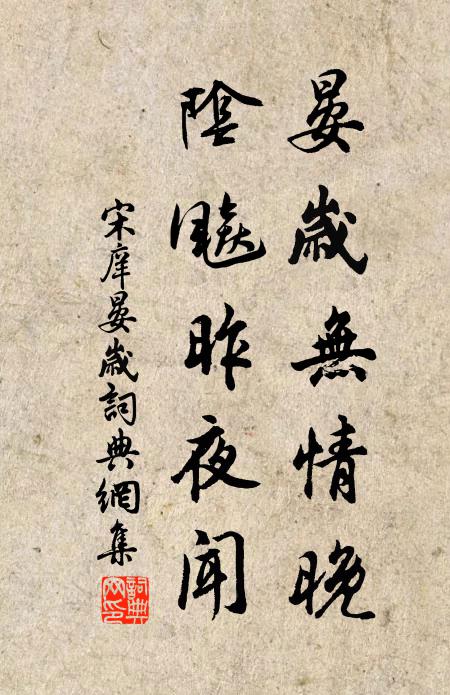 晏歲無情晚
陰飈昨夜聞
宋庠晏歲詞典網集
詞典文印